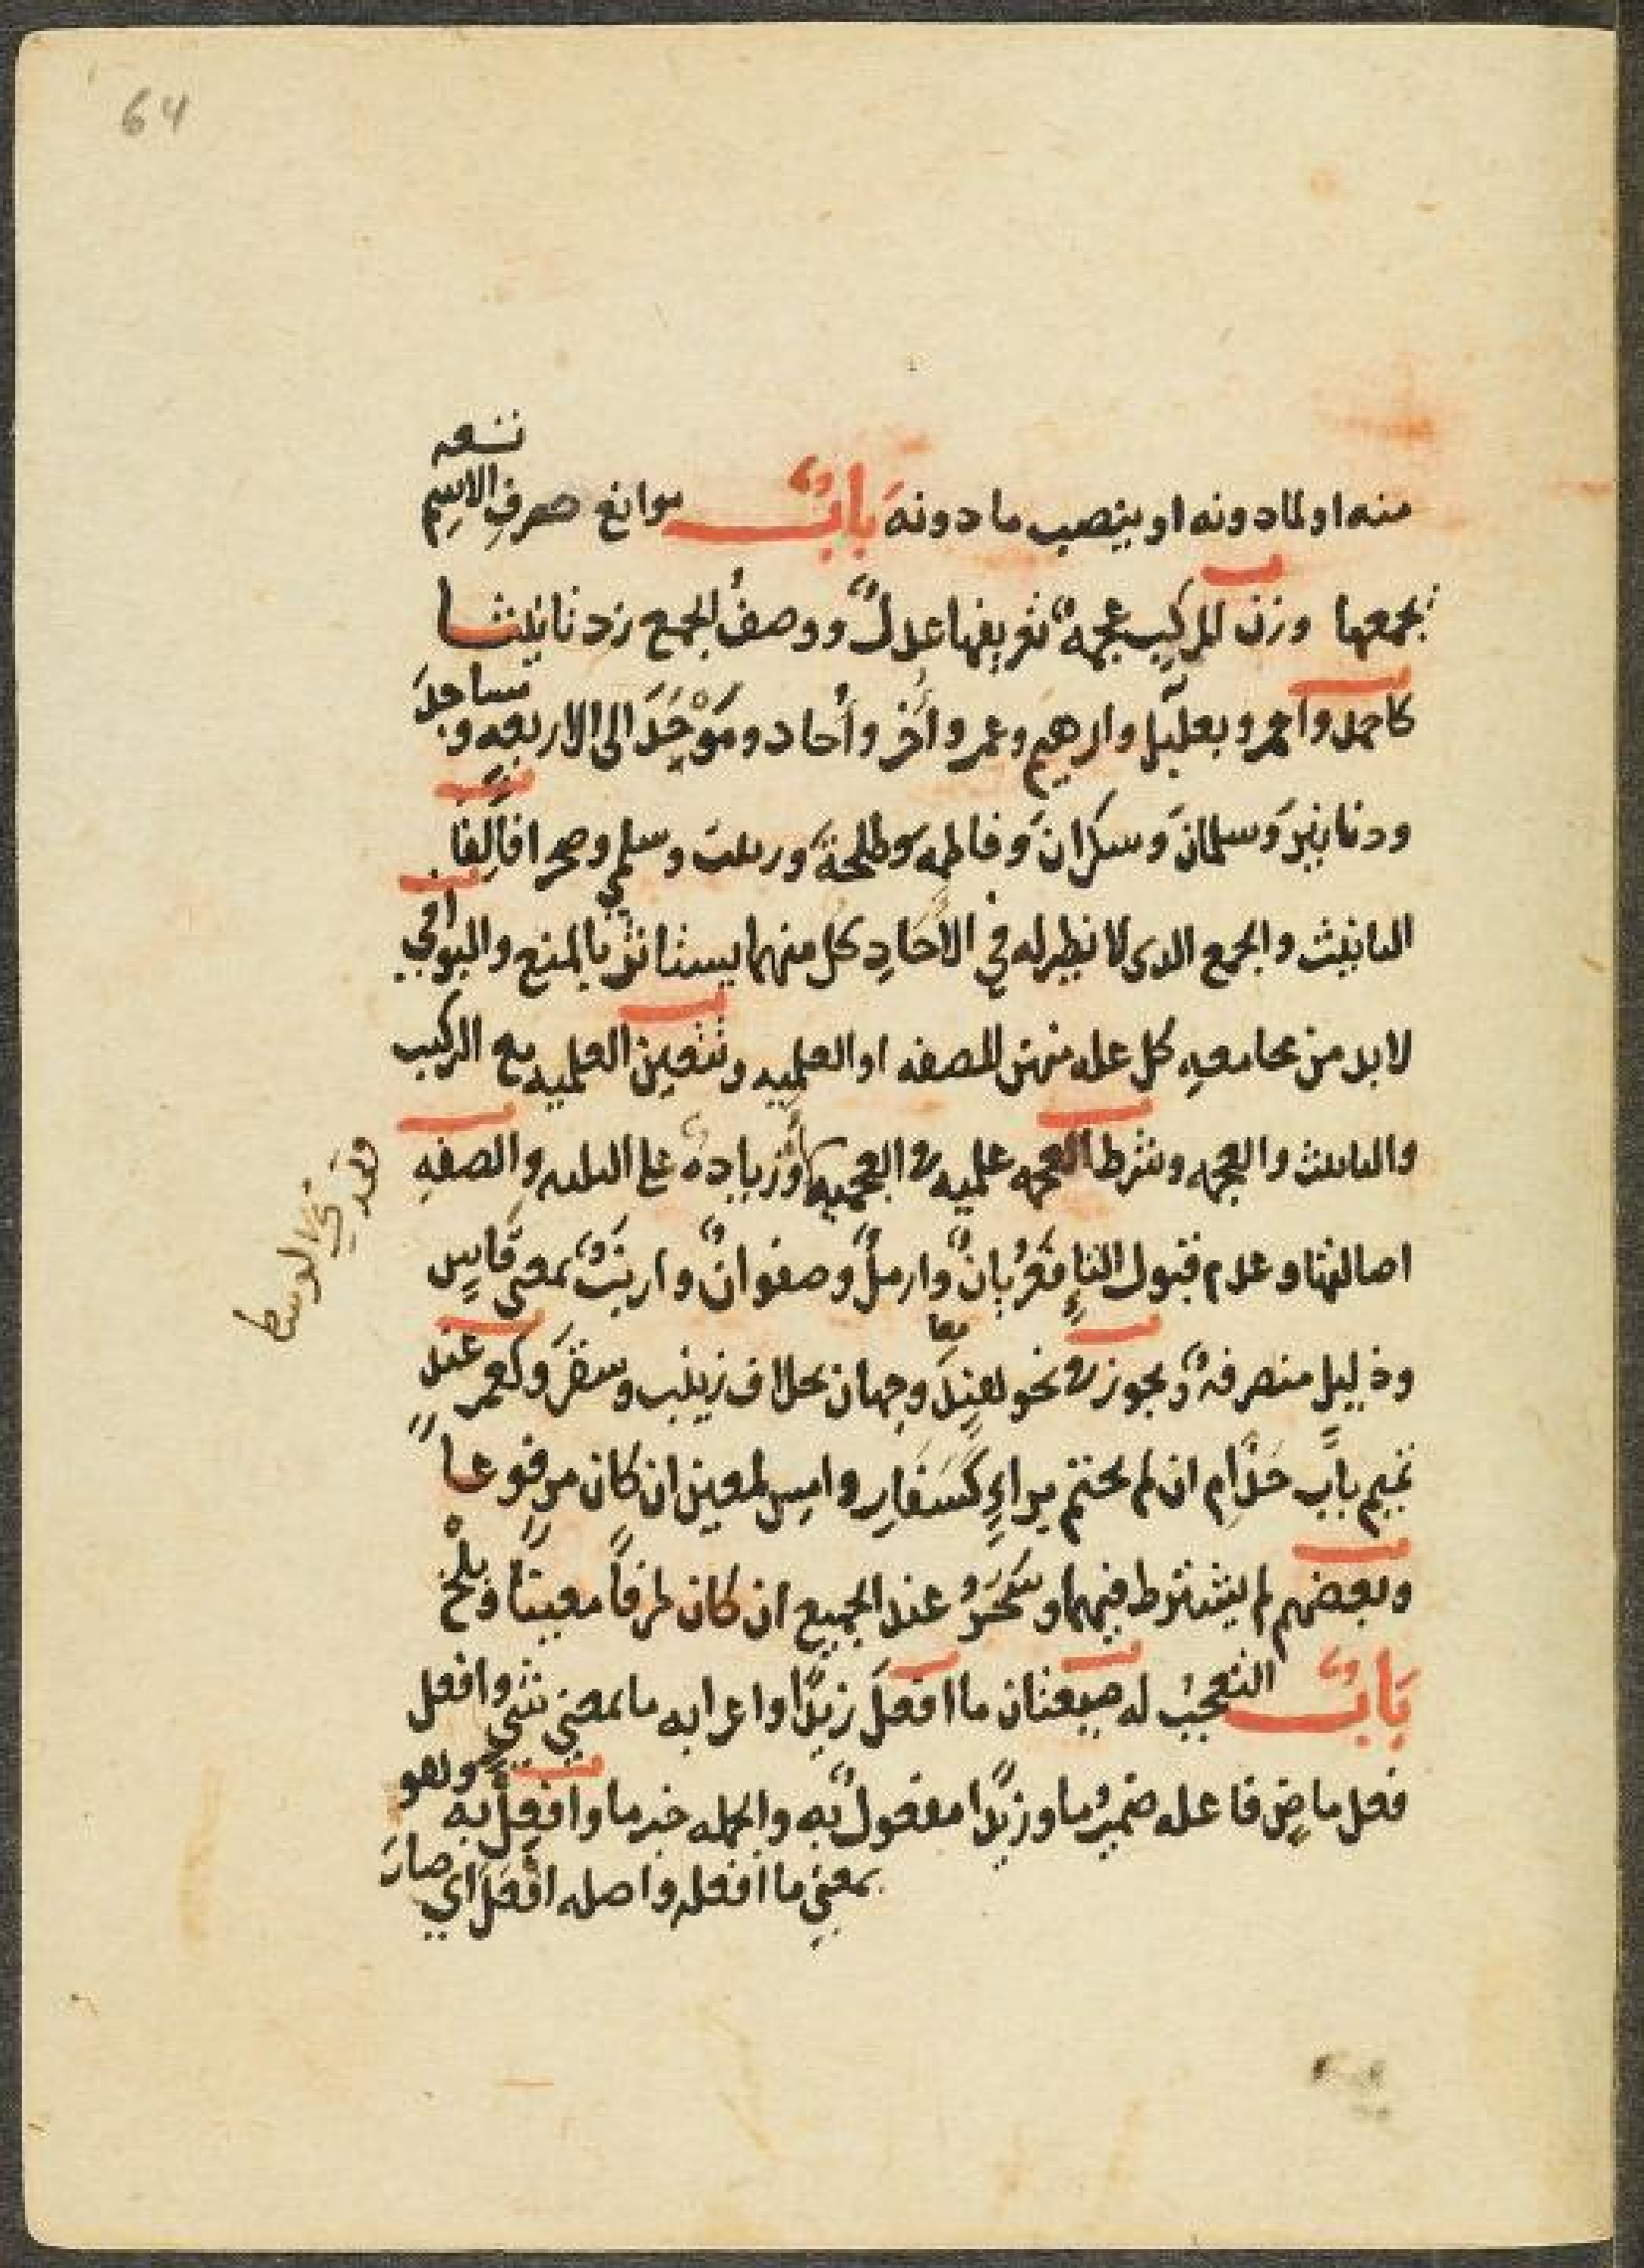 64
منه او لما دونه او ينصب ما دونه باب موانع صرف الاسم تسعه
يجمعها وزن المركب عجمة تعريفها عدل ووصف الجمع زد تانيثا
كاحمد واحمر وبعلبك وابرهيم وعمر واخر وأحاد وموحد الى الاربعه ومساجد
ودنانير وسلمان وسكران وفاطمه وطلحة وزينب وسلمى وصحرا فالف
التانيث والجمع الدى لا نظير له في الاحاد كل منهما يستاثر بالمنع والبواقي
لابد من مجامعه كل عله منهن للصفه او العلميه وتتعين العلميه مع التركيب
والتانيث والعجمه وشرط العجمه علميه في العجميه وزيادة على الثلاثه والصفه
اصالتها وعدم قبول التاء فعريان وارمل وصفوان وارنب بمعنى قاس
وذليل منصرفة ويجوز في نحو هند وجهان بخلاف زينب وسقر وكعمر عند
تميم باب حذام ان لم يختم براء كسفار وامس لمعين ان كان مرفوعا
وبعضهم لم يشترط فيهما وسحر عند الجميع ان كان ظرفا معينا بلخ
باب التعجب له صيغتان ما افعل زيدا واعرابه ما بمعنى شي وافعل
فعل ماض فاعله ضمير ما وزيدا مفعول به والجمله خبر ما وافعل به وهو
بمعنى ما افعله واصله افعل اي صار
الوسط